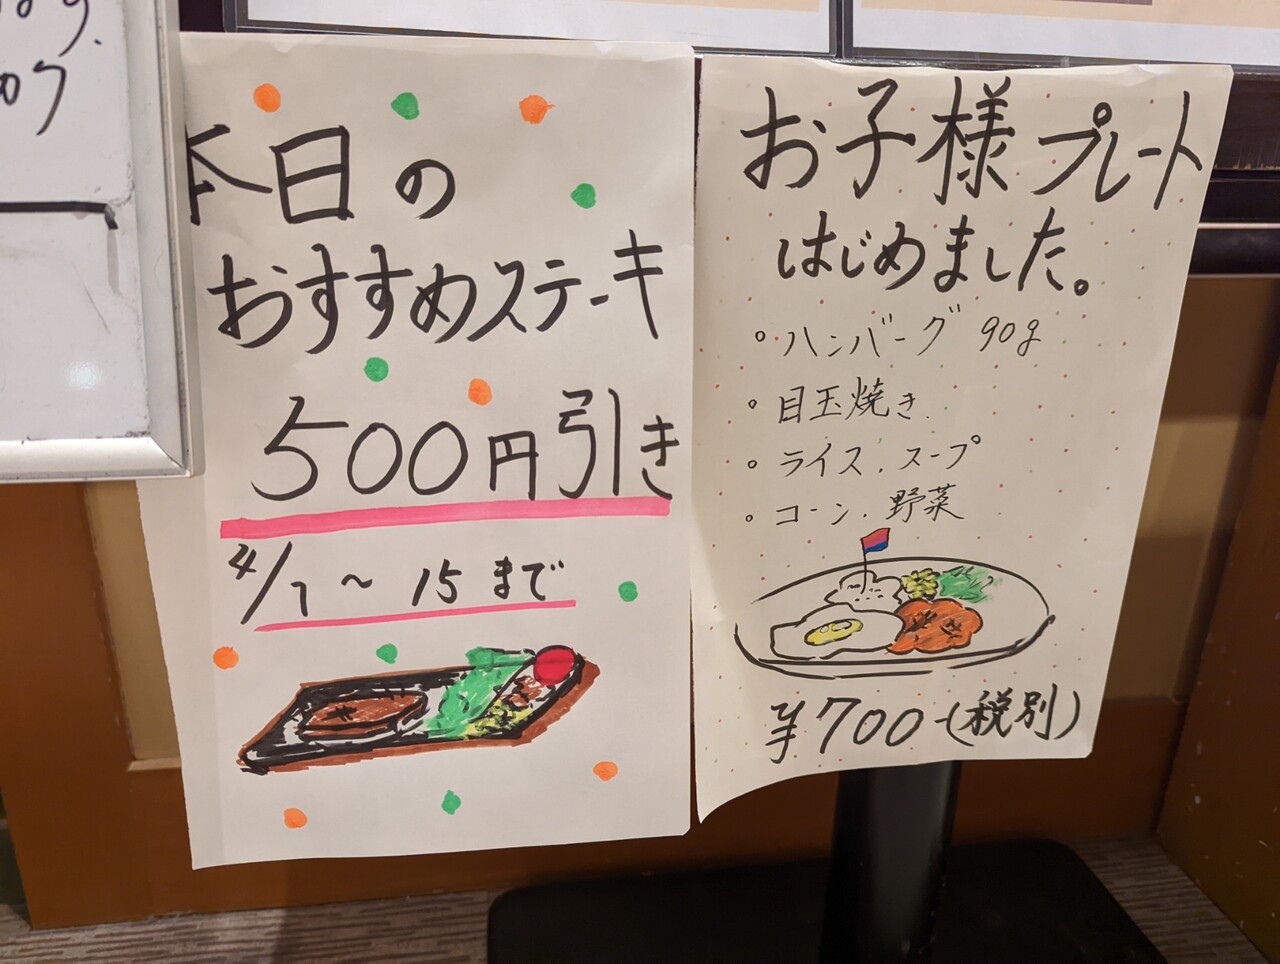 本日の
おすすめステーキ
500円引き
4/1～15まで
お子様プレート
はじめました。
。ハンバーグ 90g
。目玉焼き
。ライス.スープ
。コーン.野菜
¥700-(税別)